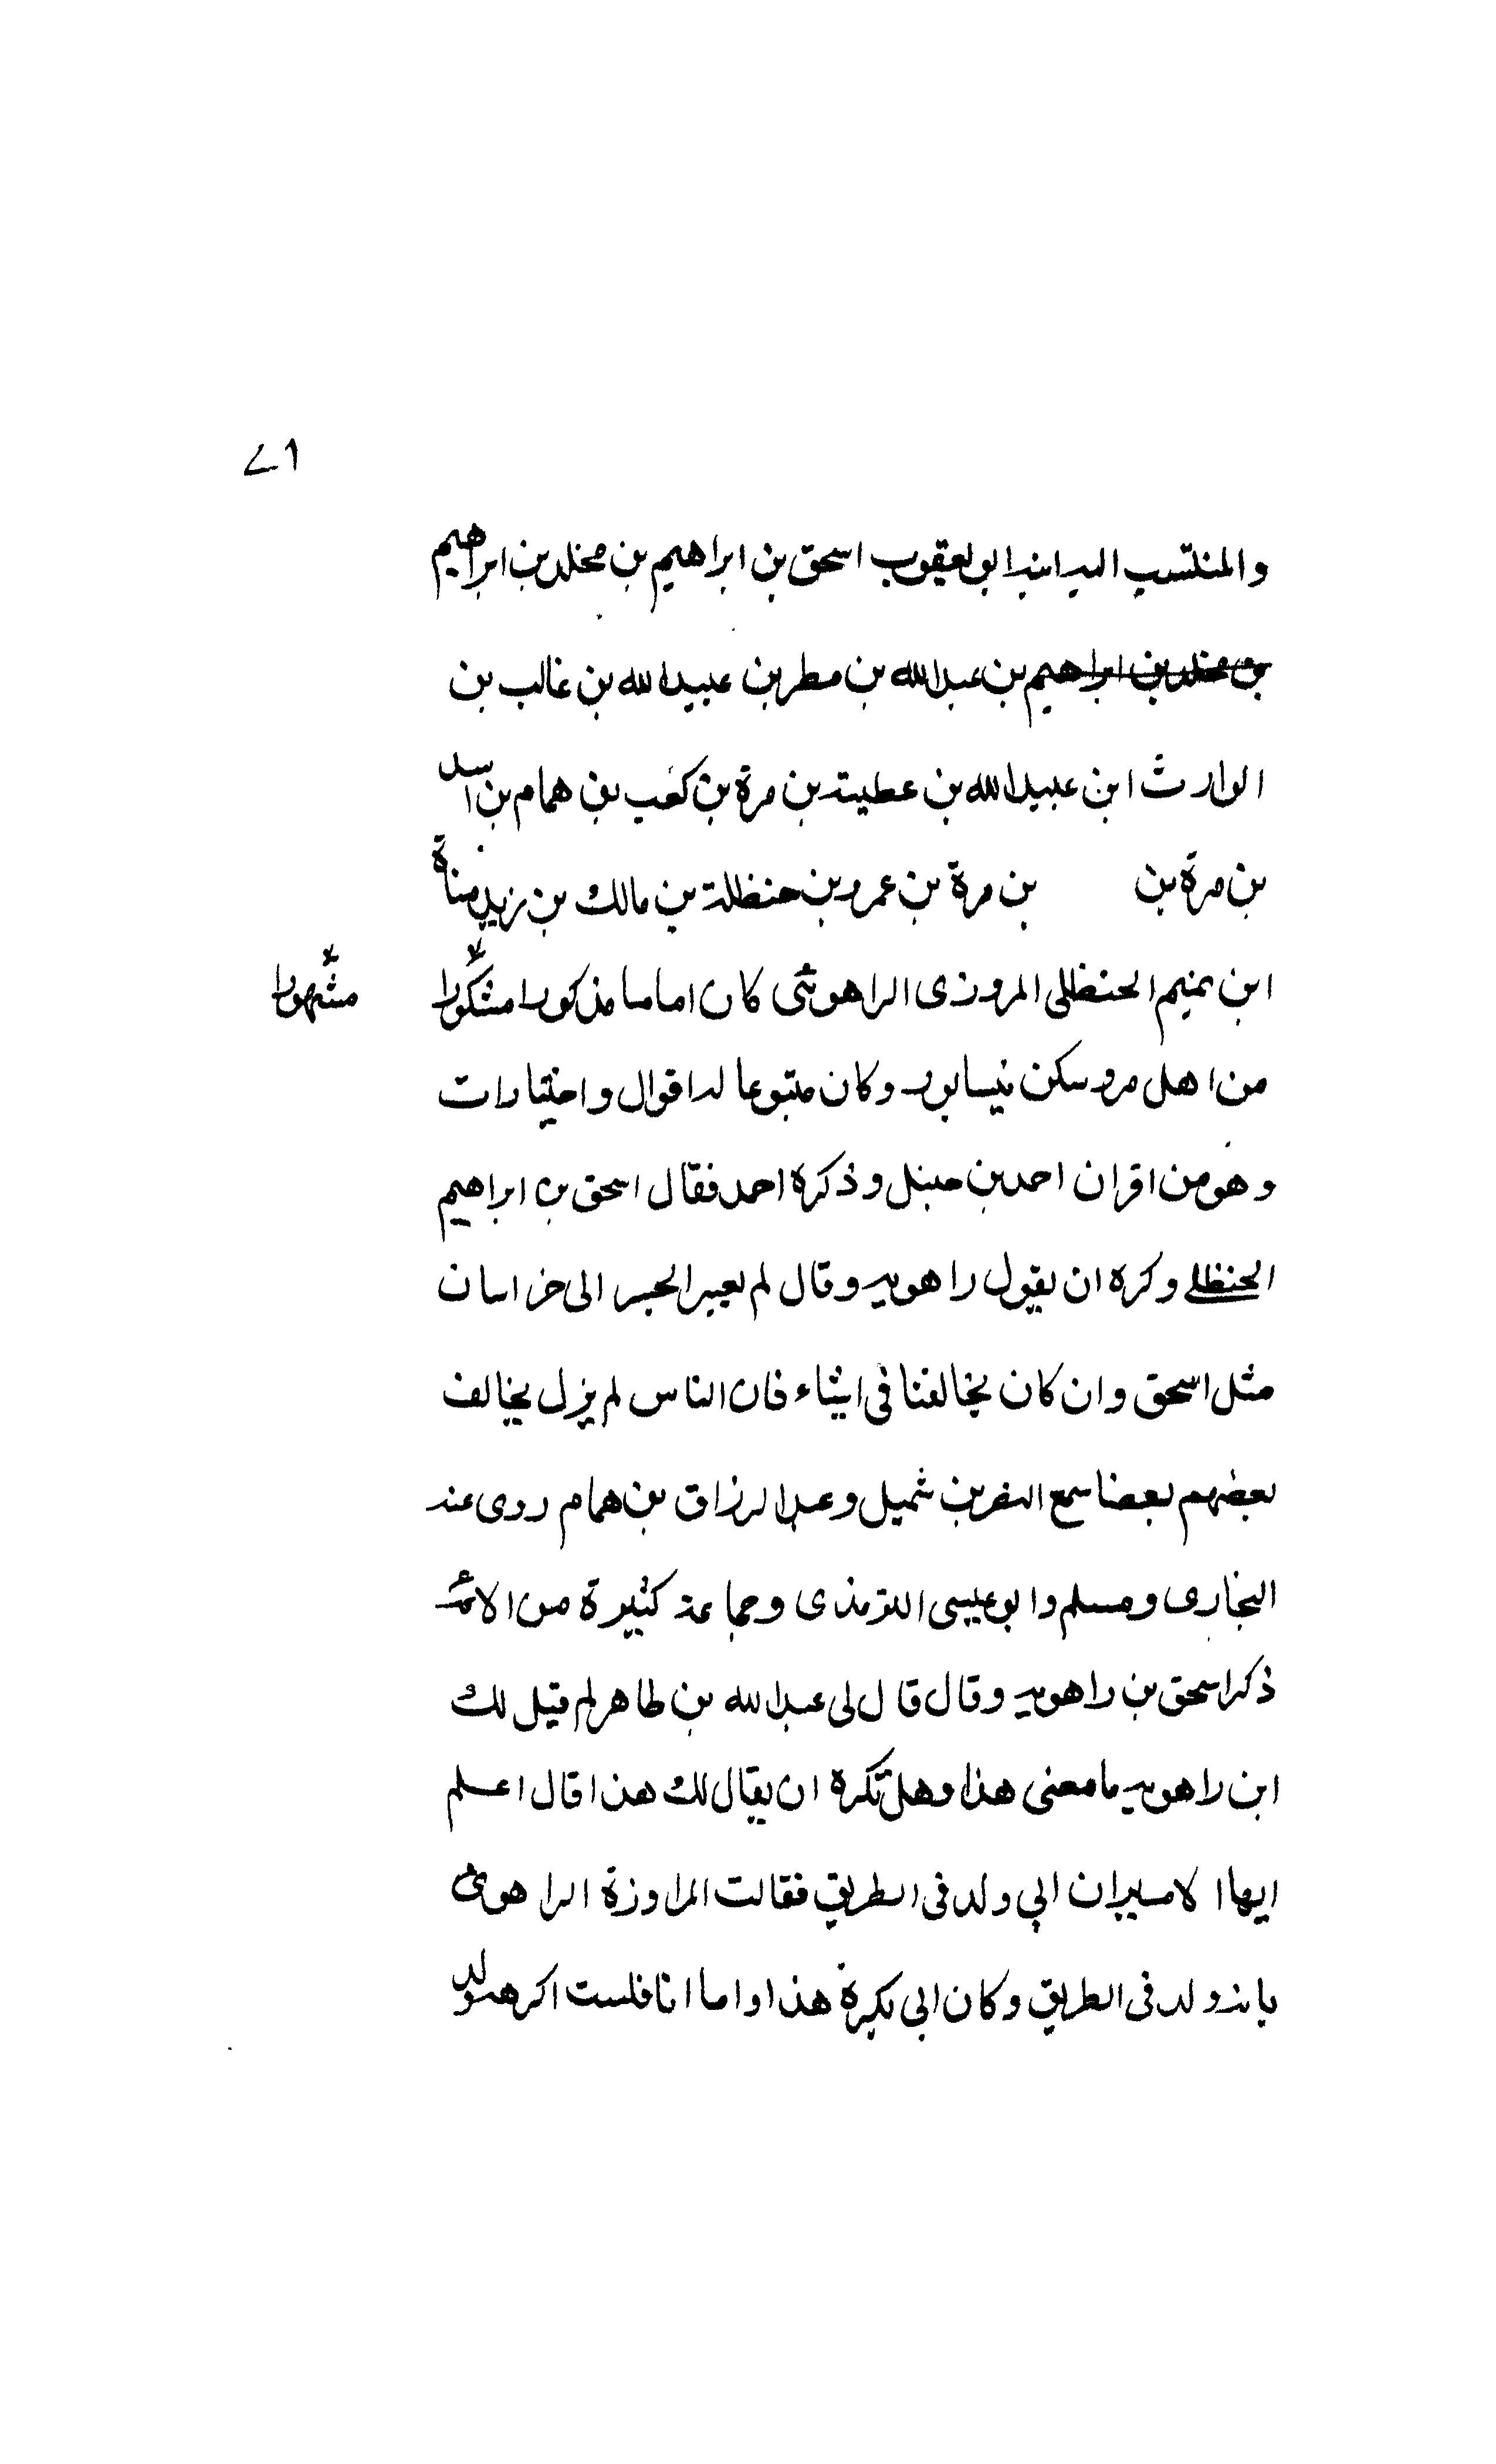 ٤١
والمنتسب اليه ابنه ابو يعقوب اسحق بن ابراهيم بن مخلد بن ابراهيم
بن مخلد بن ابراهيم بن عبدالله بن مطر بن عبيدالله بن غالب بن
الوارث ابن عبيدالله بن عطية بن مرة بن كعب بن همام بن اسد
بن مرة بن بن مرة بن عمرو بن حنظلة بن مالك بن زيد مناة
ابن تميم الحنظلى المروزى الراهوئى كان اماما مذكورا مشكورا مشهورا
من اهل مرو سكن نيسابور وكان متبوعا له اقوال واختيارات
وهو من اقران احمد بن حنبل وذكره احمد فقال اسحق بن ابراهيم
الحنظلى وكره ان يقول راهويه وقال لم يعبر الجسر الى خراسان
مثل اسحق وان كان يخالفنا فى اشياء فان الناس لم يزل يخالف
بعضهم بعضا سمع النضر بن شميل وعبدالرزاق بن همام روى عنه
البخارى ومسلم وابو عيسى الترمذى وجماعة كثيرة من الائمة
ذكر اسحق بن راهويه وقال قال لى عبدالله بن طاهر لم قيل لك
ابن راهويه ما معنى هذا وهل تكره ان يقال لك هذا قال اعلم
ايها الامير ان ابى ولد فى الطريق فقالت المراوزة الراهوى
بانه ولد فى الطريق وكان ابى يكره هذا واما انا فلست اكرهه ولد